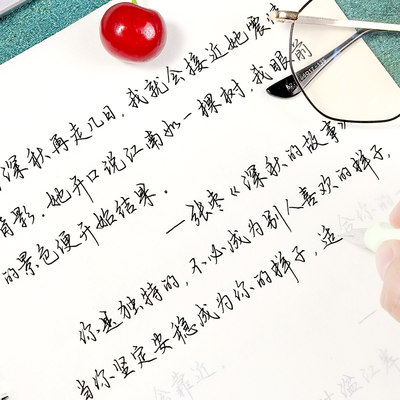 深秋再走几日，我就会接近她震
背影．她开口说江南如一棵树，我眼前
的景色便开始结果．
—张枣《深秋的故事》
你是独特的，不必成为别人喜欢的样子，
当你坚定安稳成为你的样子，适
合你的
会靠近．